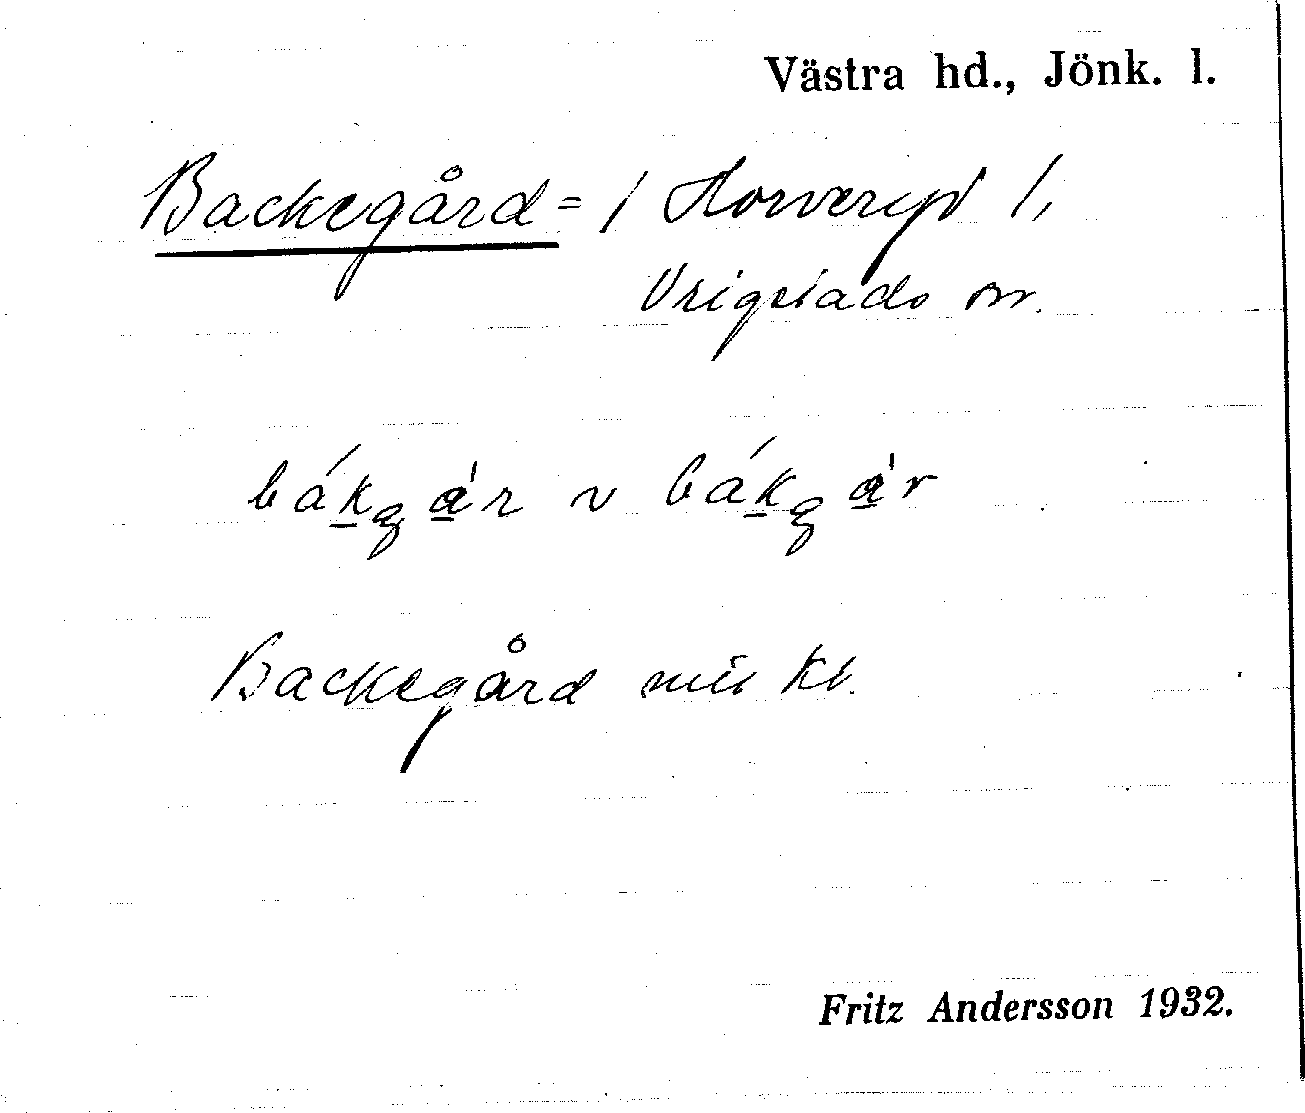 Västra hd., Jönk. l.
Backegård = / Horveryd /,
Vrigstads sn.
bákgàr ~ bákgàr
Backegård mil kb.
Fritz Andersson 1932.